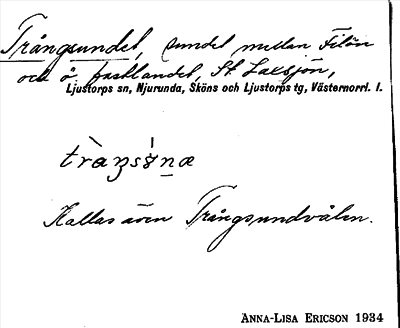 Trångsundet, sundet mellan Filön
och ö. fastlandet, St. Laxsjön,
Ljustorps sn, Njurunda, Sköns och Ljustorps tg, Västernorrl. l.
Kallas även Trångsundvålen.
ANNA-LISA ERICSON 1934